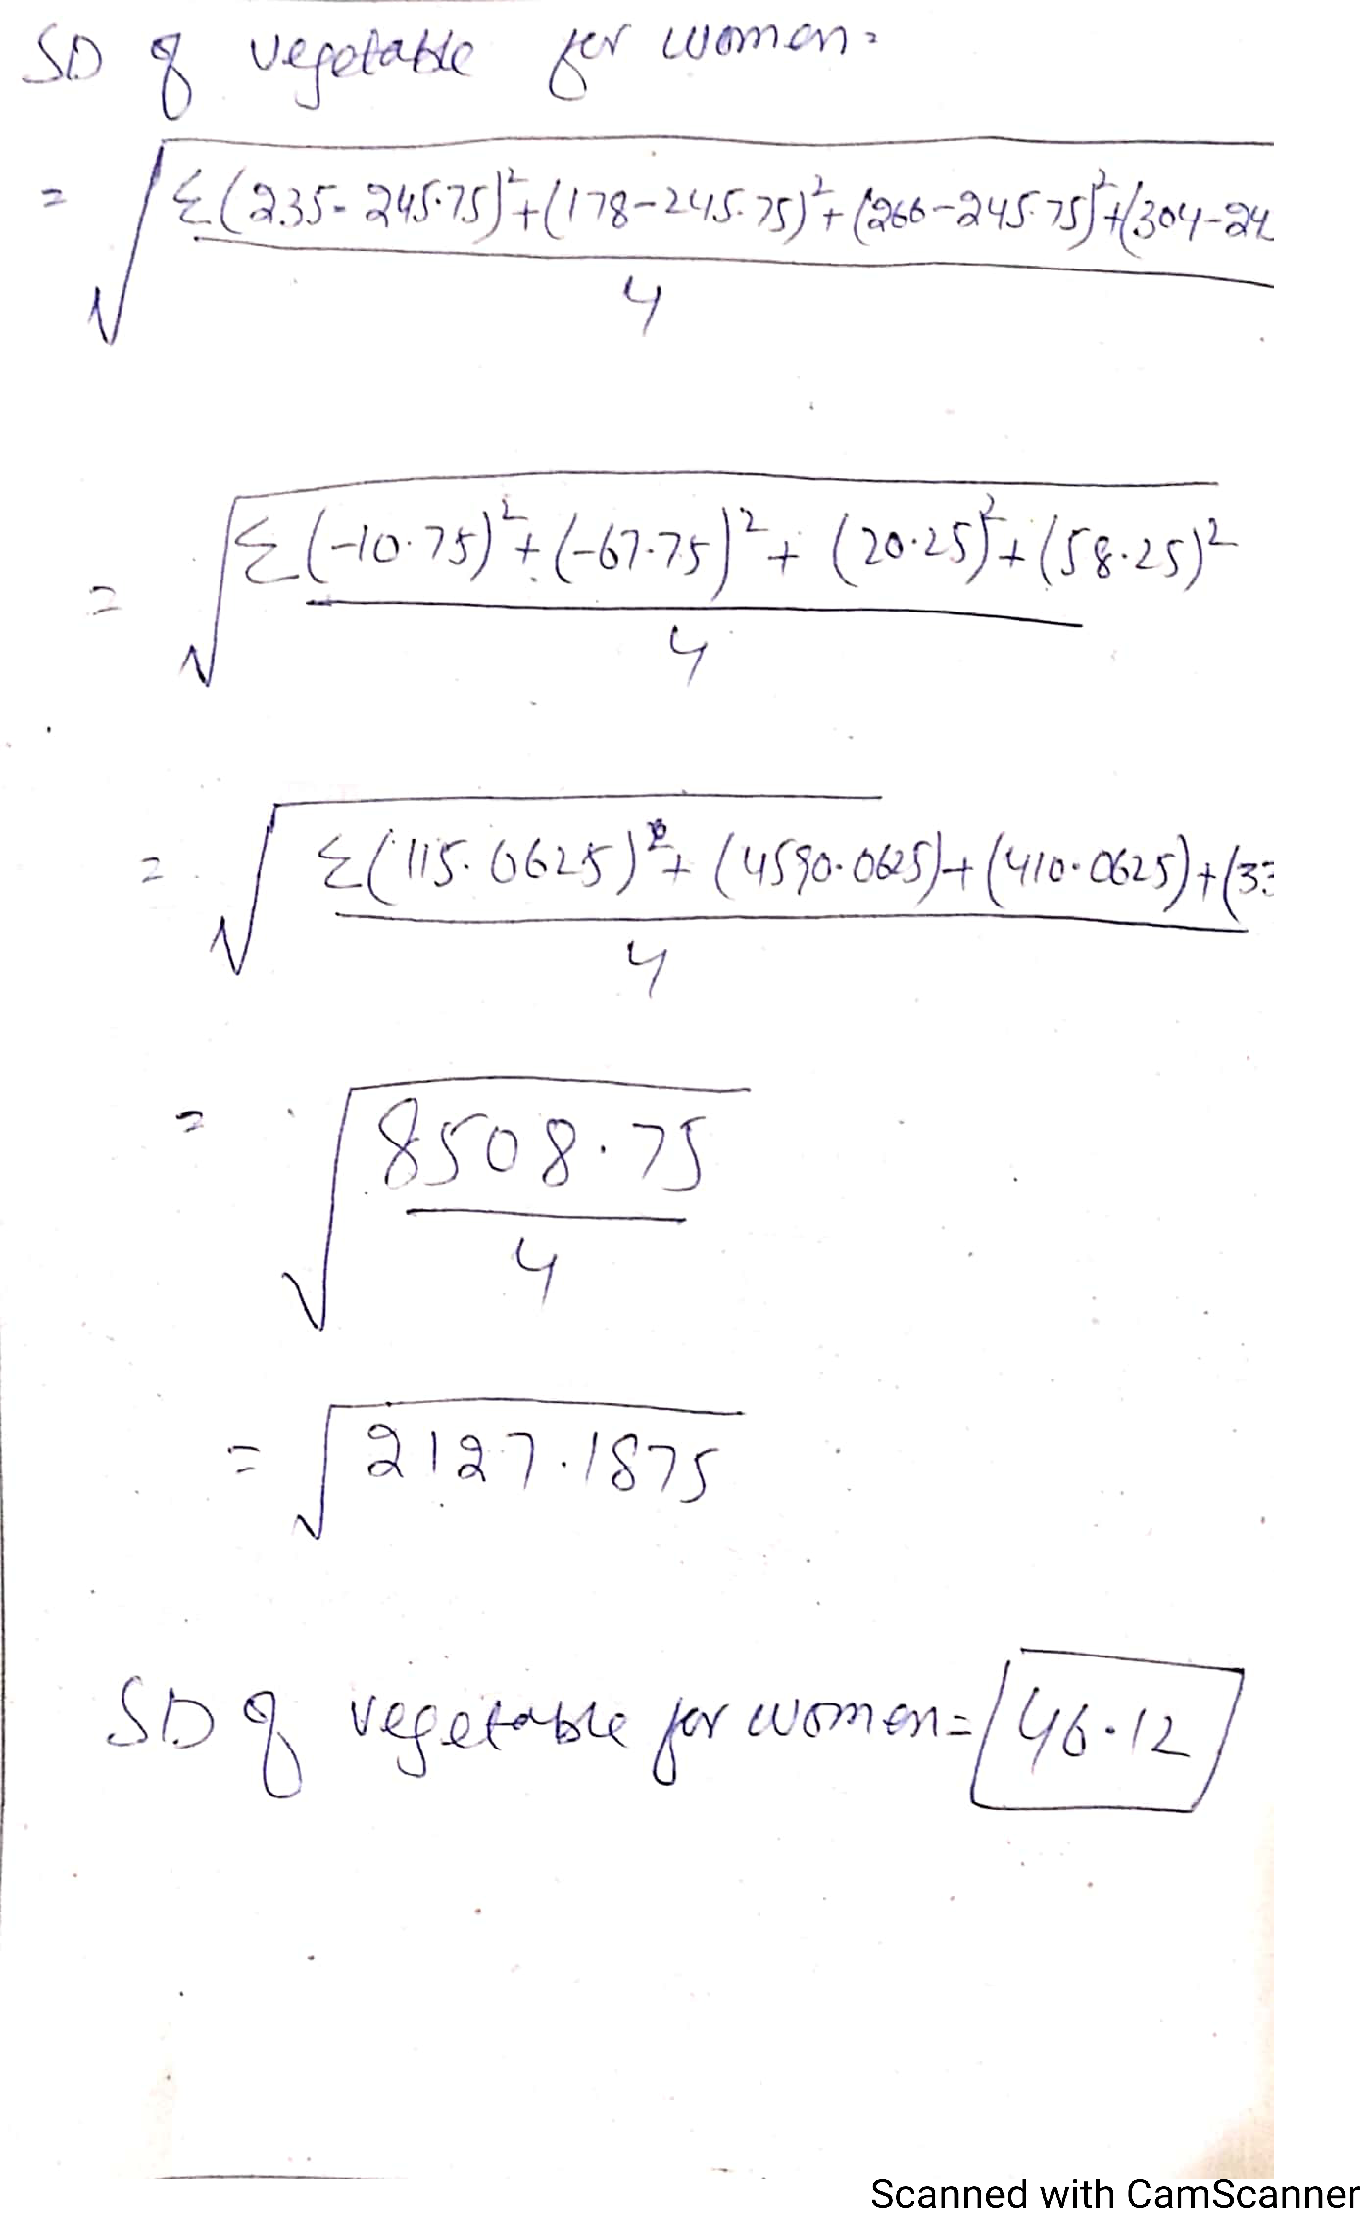 SD of vegetable for women=
= √ Σ(235-245.75)²+(178-245.75)²+(266-245.75)²+(304-24
4
= √ Σ(-10.75)²+(-67.75)²+(20.25)²+(58.25)²
4
= √ Σ(115.0625)+(4590.0625)+(410.0625)+(33
4
= √ 8508.75
4
= √ 2127.1875
SD of vegetable for women= 46.12
Scanned with CamScanner